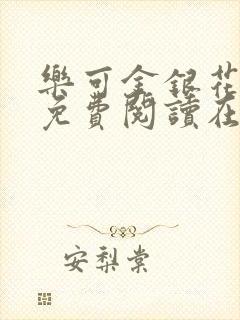 樂可金銀花
免費閱讀在
安梨棠